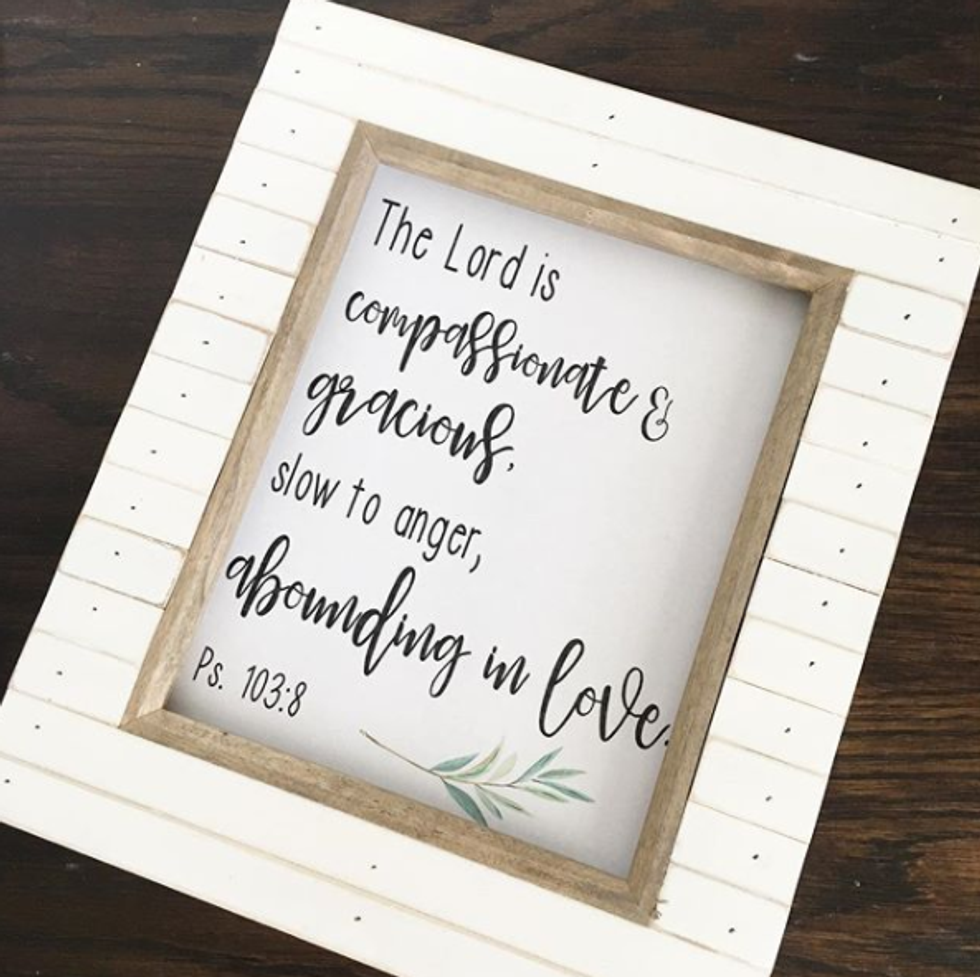 The Lord is
compassionate &
gracious,
slow to anger,
abounding in love.
Ps. 103:8